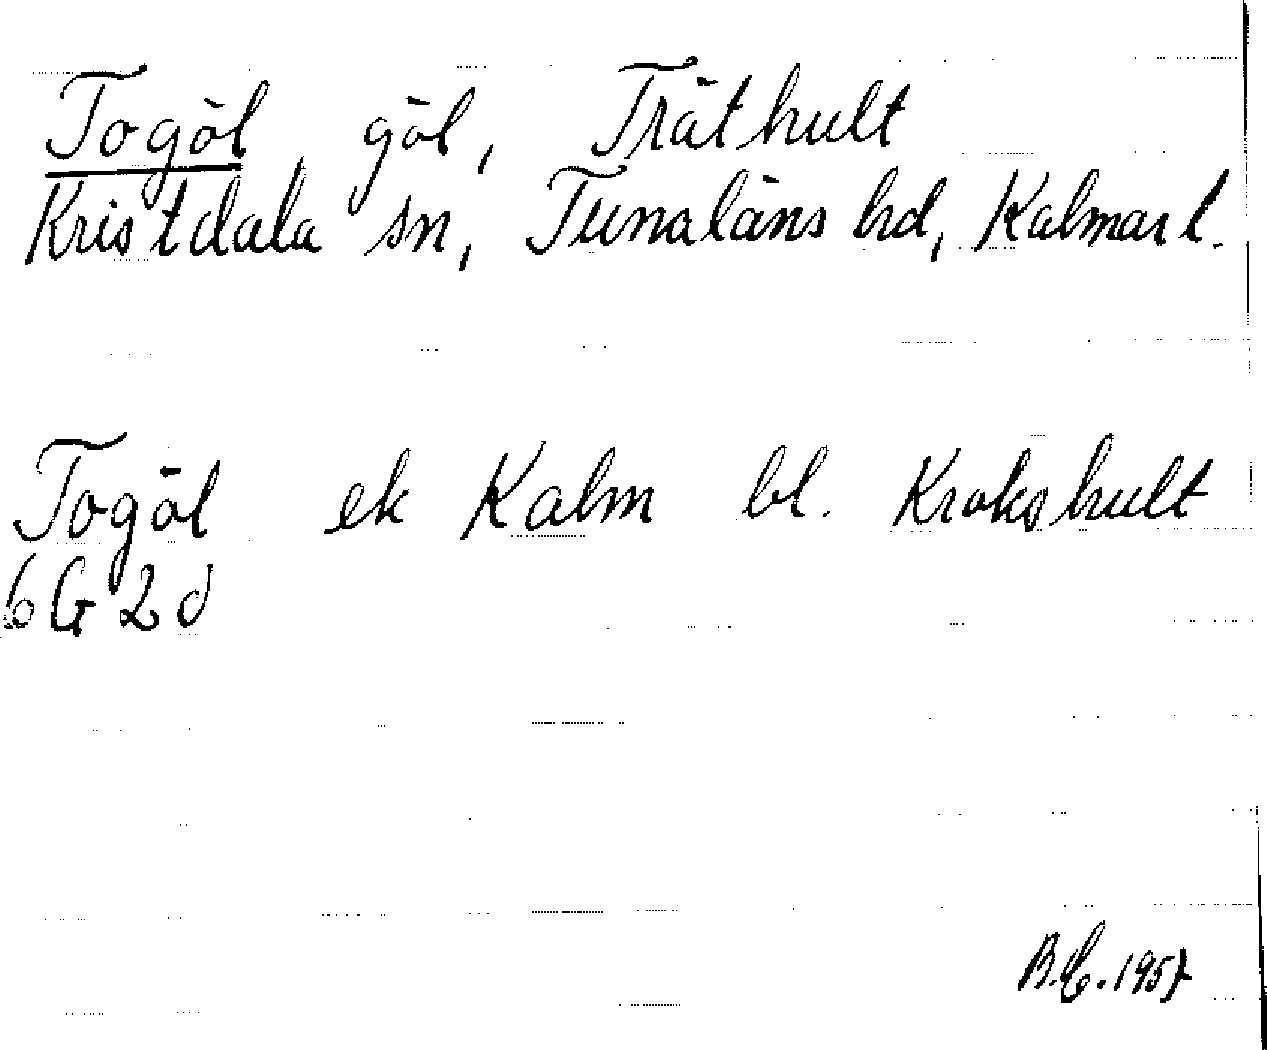 Togöl göl, Träthult
Kristdala sn, Tunaläns hd, Kalmar l.
Togöl ek Kalm bl. Krokshult
6 G 2 d
B.E. 1957